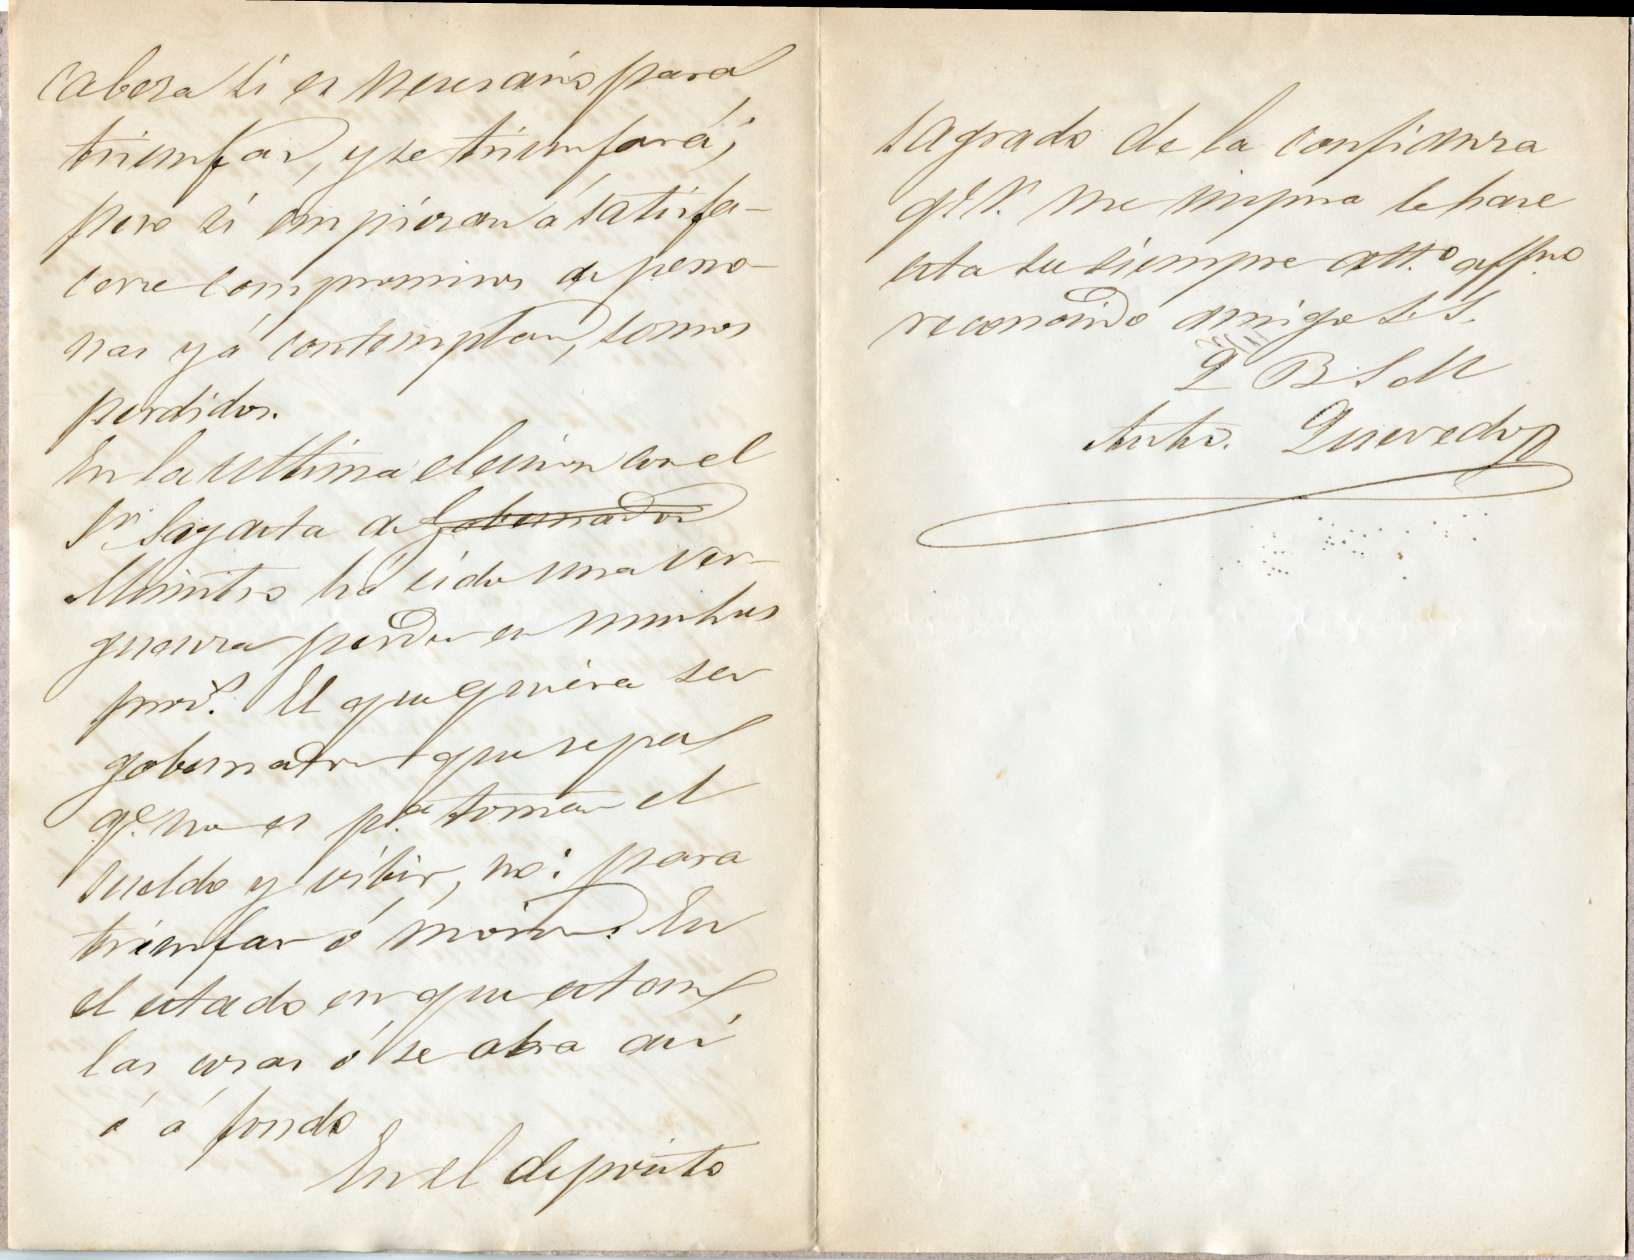 cabesa si es nesesario para
triunfar, y se triunfará;
pero si empiezan á satisfa-
cerse compromisos de perso-
nas y á contemplar, somos
perdidos.
En la ultima elecion con el
Sr. Sagasta de Gobernador
Ministro há sido una ver-
guenza perder en muchas
prov.s El que quiera ser
gobernador que sepa
qe. no es pa. tomar el
sueldo y vibir, no: para
triunfar ó morir. En
el estado en que estan
las cosas ó se obra asi
ó á fondo
En el deposito
sagrado de la confianza
qe. V. me inspira le hase
esta su siempre att.o aff.mo
reconosido amigo S. S.
Q B S M
Anto. Quevedo